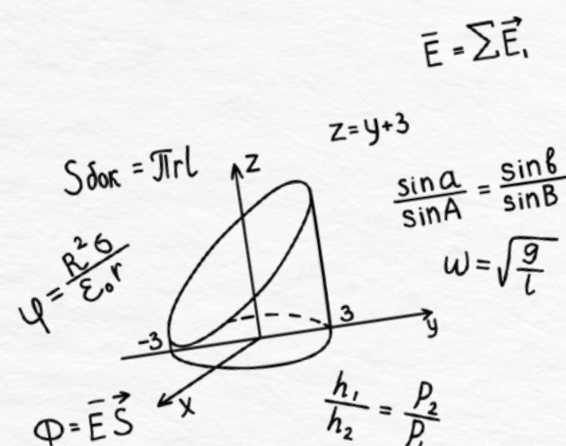 E̅ = ΣE⃗₁
z=y+3
Sбок = πrl
z
sin a / sin A = sin b / sin B
φ = R²σ / ε₀r
ω = √(g/l)
-3
3
y
x
Φ = E̅ S⃗
h₁/h₂ = P₂/P